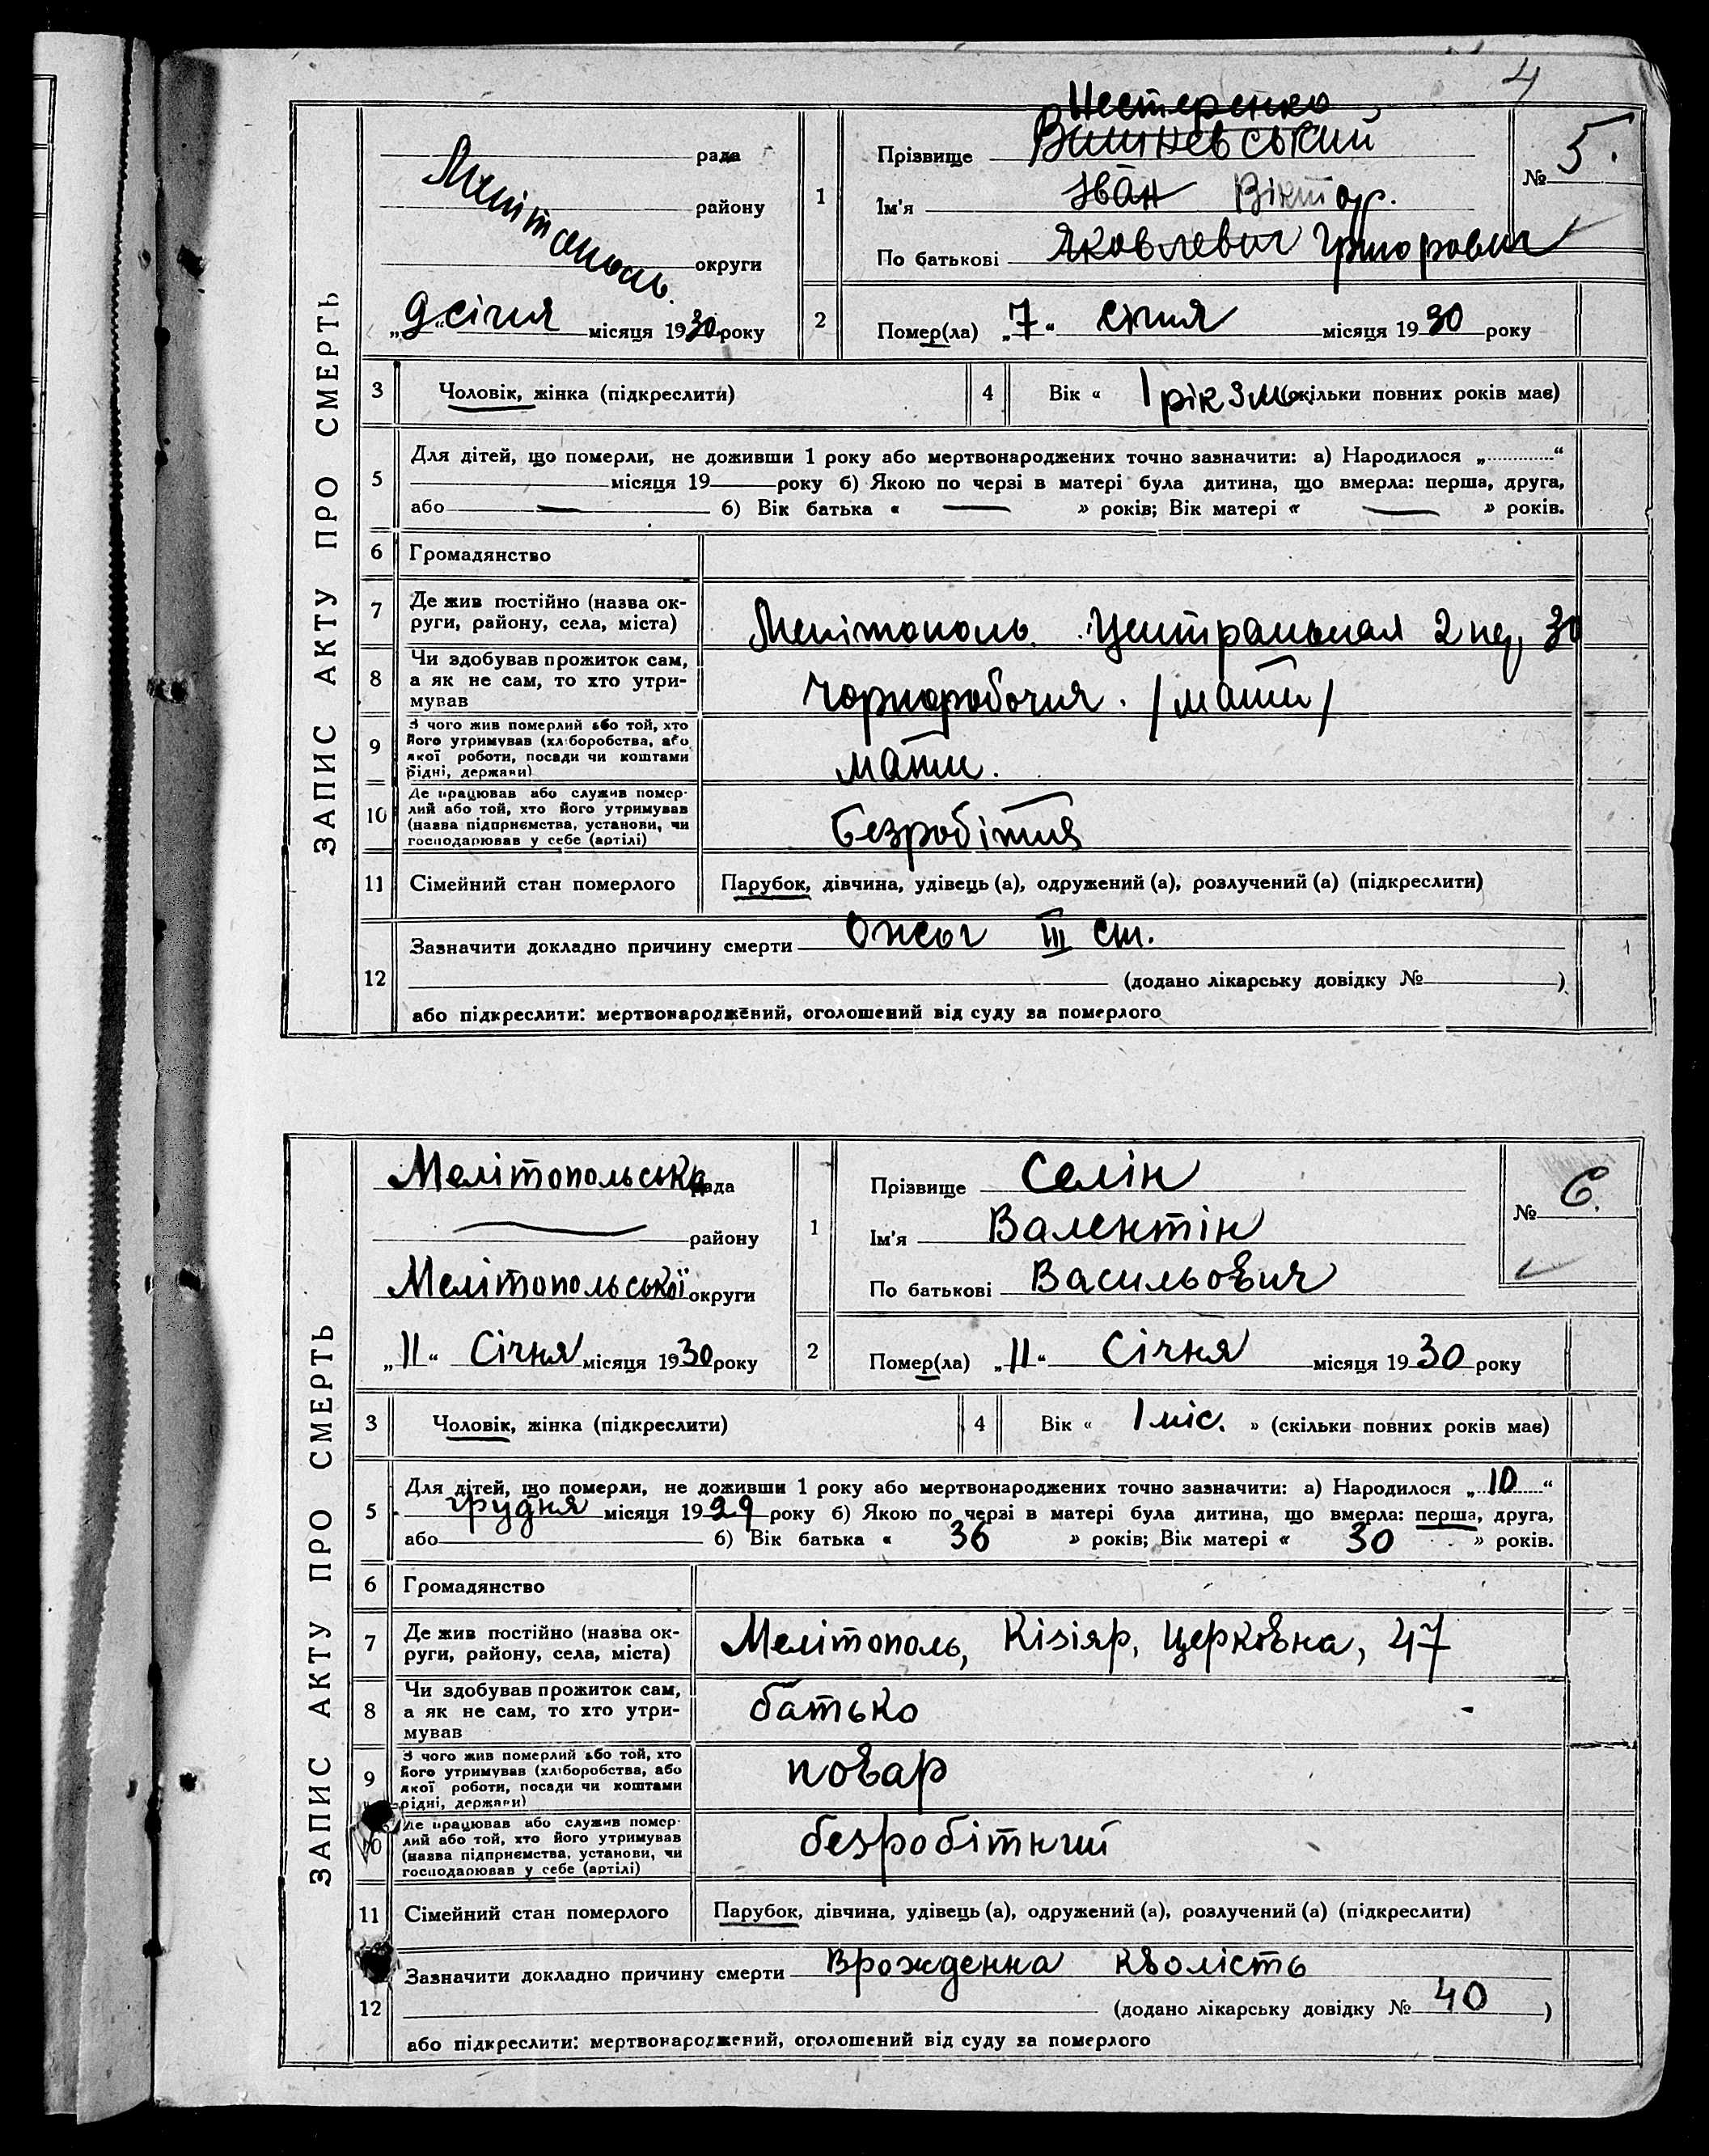 4
ЗАПИС АКТУ ПРО СМЕРТЬ
рада
Мелітополь.
району
округи
„9“ січня місяця 1930 року
1
Нестеренко
Прізвище Вишневський
Ім'я Іван Віктор.
По батькові Яковлевич Григорович
№ 5.
2
Помер(ла) „7“ січня місяця 1930 року
3 Чоловік, жінка (підкреслити)
4 Вік « 1 рік 3 м. скільки повних років має)
5 Для дітей, що померли, не доживши 1 року або мертвонароджених точно зазначити: а) Народилося „ “
місяця 19 року б) Якою по черзі в матері була дитина, що вмерла: перша, друга,
або — б) Вік батька « — » років; Вік матері « — » років.
6 Громадянство
7 Де жив постійно (назва ок-
руги, району, села, міста)
Мелітополь Центральная 30
8 Чи здобував прожиток сам,
а як не сам, то хто утри-
мував
чорноробочия. /мати/
9 З чого жив померлий або той, хто
його утримував (хліборобства, або
якої роботи, посади чи коштами
рідні, держави)
мати.
10 Де працював або служив помер-
лий або той, хто його утримував
(назва підприємства, установи, чи
господарював у себе (артілі)
безробітня
11 Сімейний стан померлого Парубок, дівчина, удівець (а), одружений (а), розлучений (а) (підкреслити)
12 Зазначити докладно причину смерти Ожог III ст.
(додано лікарську довідку № )
або підкреслити: мертвонароджений, оголошений від суду за померлого
ЗАПИС АКТУ ПРО СМЕРТЬ
Мелітопольська рада
— району
Мелітопольської округи
„11“ Січня місяця 1930 року
1
Прізвище Селін
Ім'я Валентін
По батькові Васильович
№ 6.
2
Помер(ла) „11“ Січня місяця 1930 року
3 Чоловік, жінка (підкреслити)
4 Вік « 1 міс. » (скільки повних років має)
5 Для дітей, що померли, не доживши 1 року або мертвонароджених точно зазначити: а) Народилося „10“
грудня місяця 1929 року б) Якою по черзі в матері була дитина, що вмерла: перша, друга,
або б) Вік батька « 36 » років; Вік матері « 30 » років.
6 Громадянство
7 Де жив постійно (назва ок-
руги, району, села, міста)
Мелітополь, Кізіяр, Церковна, 47
8 Чи здобував прожиток сам,
а як не сам, то хто утри-
мував
батько
9 З чого жив померлий або той, хто
його утримував (хліборобства, або
якої роботи, посади чи коштами
рідні, держави)
повар
10 Де працював або служив помер-
лий або той, хто його утримував
(назва підприємства, установи, чи
господарював у себе (артілі)
безробітний
11 Сімейний стан померлого Парубок, дівчина, удівець (а), одружений (а), розлучений (а) (підкреслити)
12 Зазначити докладно причину смерти Врожденна кволість
(додано лікарську довідку № 40 )
або підкреслити: мертвонароджений, оголошений від суду за померлого